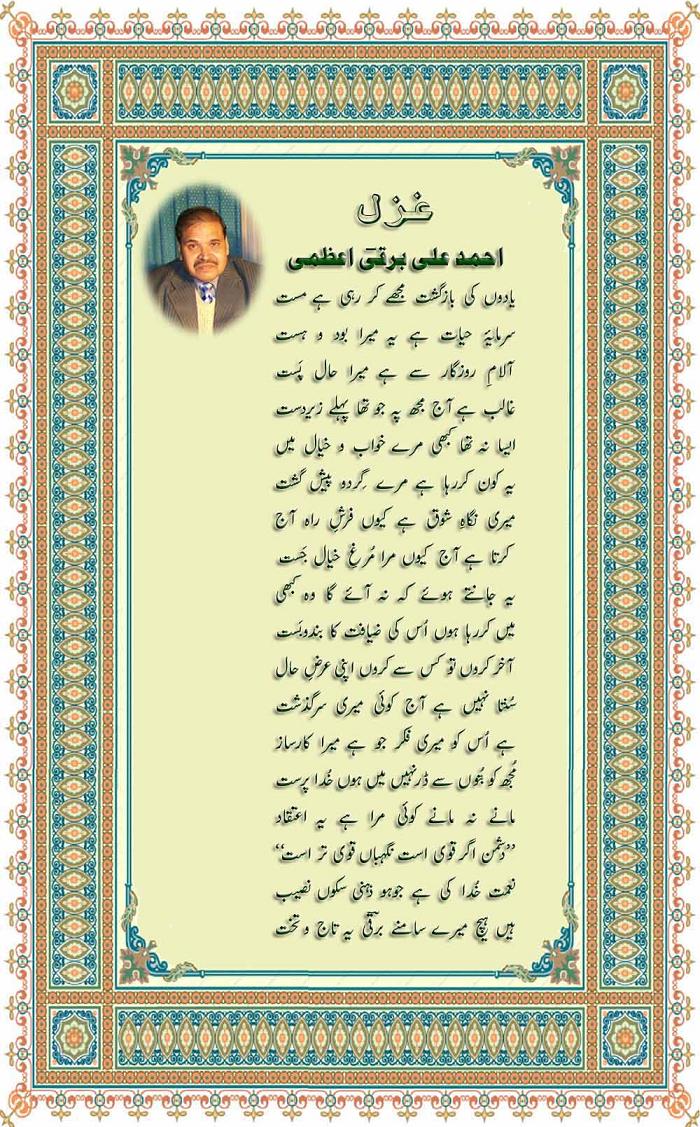 غزل
احمد علی برقی اعظمی
یادوں کی بازگشت مجھے کر رہی ہے مست
سرمایۂ حیات ہے یہ میرا بود و ہست
آلامِ روزگار سے ہے میرا حال پَست
غالب ہے آج مجھ پہ جو تھا پہلے زیردست
ایسا نہ تھا کبھی مرے خواب و خیال میں
یہ کون کررہا ہے مرے گِردو پیش گشت
میری نگاہِ شوق ہے کیوں فرشِ راہ آج
کرتا ہے آج کیوں مرا مُرغِ خیال جَست
یہ جانتے ہوئے کہ نہ آئے گا وہ کبھی
میں کررہا ہوں اُس کی ضیافت کا بندوبَست
آخر کروں تو کس سے کروں اپنی عرضِ حال
سُنتا نہیں ہے آج کوئی میری سرگذشت
ہے اُس کو میری فکر جو ہے میرا کارساز
مُجھ کو بُتوں سے ڈرنہیں میں ہوں خُدا پرست
مانے نہ مانے کوئی مرا ہے یہ اعتقاد
”دشمن اگر قوی است نگہباں قوی تر است“
نعمت خُدا کی ہے جوہو ذہنی سکوں نصیب
ہیں ہیچ میرے سامنے برقیؔ یہ تاج و تخت